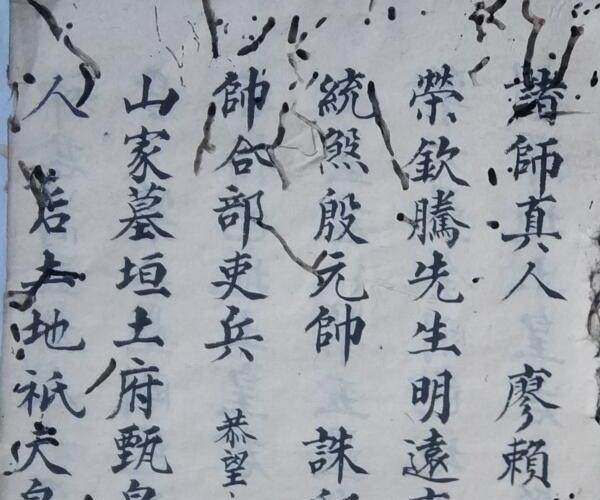 諸師真人 廖賴
榮欽騰先生明遠
統煞殷元帥 誅
帥合部吏兵 恭望
山家墓垣土府甄
人 岩土地祇天